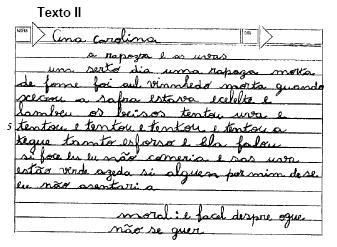 Texto II
Ana Carolina
a rapoza e as uvas
um serto dia uma rapoza morta
de fome foi aul vinnhedo morta quando
xecou a safra estava ecelete e
lambeu os beisos tentou uva e
5 tentou e tentou e tentou e tentou a
tegue tamto esforso e Ela falou
si foce eu eu não comeria e sas uva
estão virde azeda si alguem por mim de se
eu não asentari a
moral: e facel despre ogue
não se guer